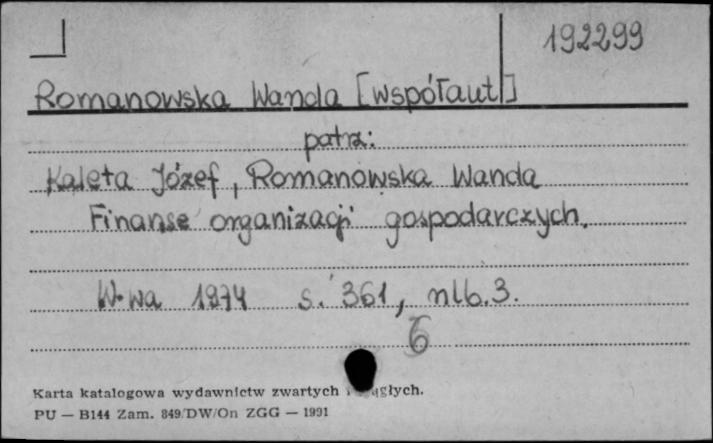 192299
Romanowska Wanda [współaut]
patrz:
Kaleta Józef, Romanowska Wanda
Finanse organizacji gospodarczych.
W-wa 1974 s. 361, nlb. 3.
6
Karta katalogowa wydawnictw zwartych
PU — B144 Zam. 849/DW/On ZGG — 1991